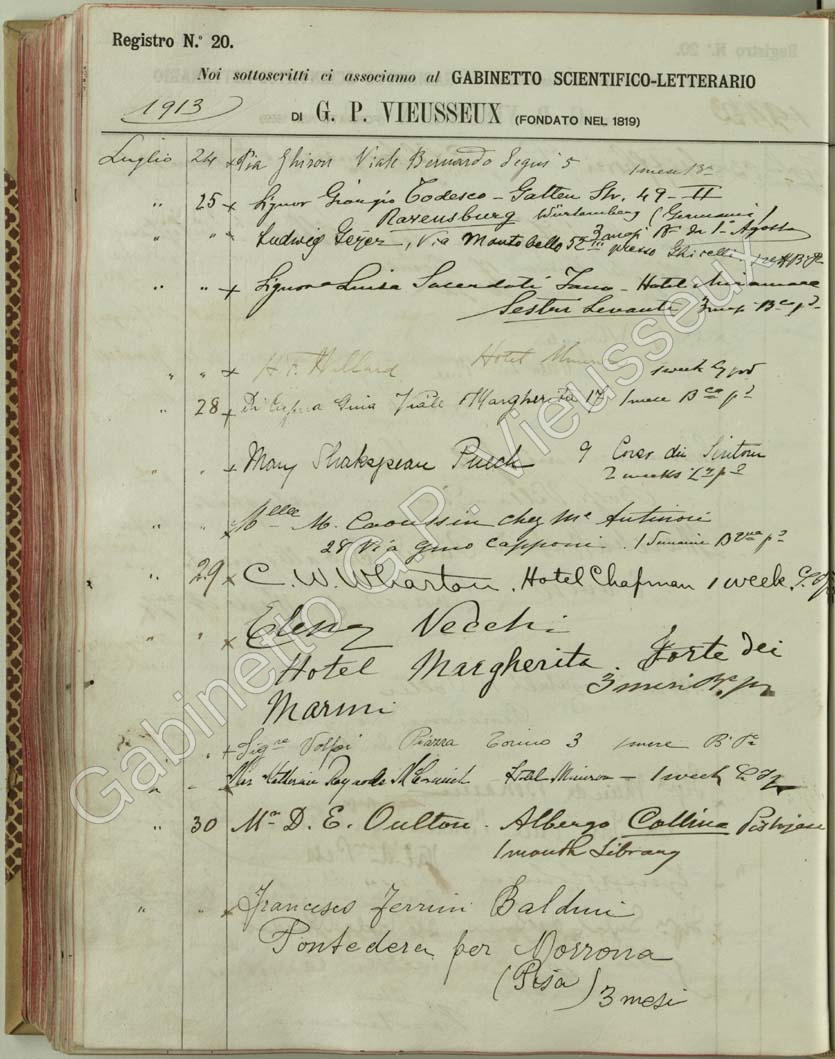 Registro N.º 20.
Noi sottoscritti ci associamo al GABINETTO SCIENTIFICO-LETTERARIO
1913
DI G. P. VIEUSSEUX (FONDATO NEL 1819)
Luglio 24 x Pia Ghiron Viale Bernardo Segni 5 1 mese
" 25 x Signor Giorgio Todesco - Garten Str. 49 - II
Ravensburg Würtemberg (Germania)
3 mesi dal 1° Agosto
" " Ludwig Geyer, Via Montebello 52 presso Ghirelli
" " x Signora Luisa Sacerdoti Fano - Hotel Miramare
Sestri Levante 3 mesi
" " x H. F. Hillard Hotel 1 week
" 28 x Gina Viale Margherita 17 1 mese
" " x Mary Shakspear Puech 9
2 weeks
" " x Melle M. Caoussin chez Me Antinori
28 Via Gino Capponi. 1 Semaine
" 29 x C. W. Wharton. Hotel Chapman 1 week
" " x Elena Vecchi
Hotel Margherita. Forte dei
3 mesi
Marmi
" " x Sigra Volpi Piazza Torino 3 1 mese
" " x Miss Katherine Reynolds Hotel Minerva - 1 week
" 30 x Mr D. E. Oulton. Albergo Collina Pistojese
1 month Library
" " x Francesco Ferrini Baldini
Pontedera per Morrona
(Pisa) 3 mesi
Gabinetto G.P. Vieusseux